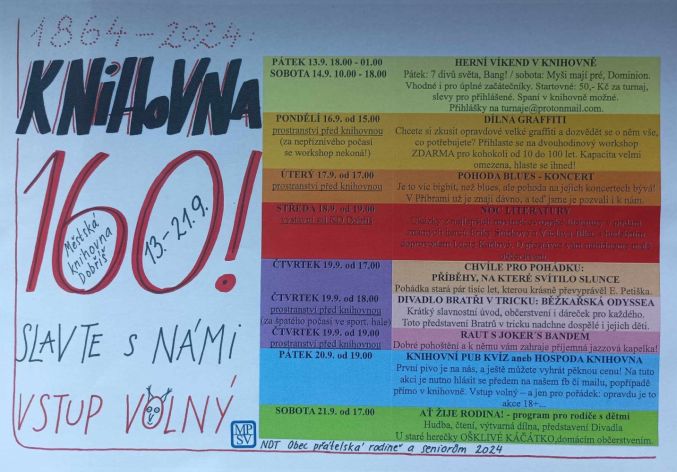 1864-2024:
KNIHOVNA
160!
Městská
knihovna
Dobříš
13.-21.9.
SLAVTE S NÁMI
VSTUP VOLNÝ
PÁTEK 13.9. 18.00 - 01.00
SOBOTA 14.9. 10.00 - 18.00
HERNÍ VÍKEND V KNIHOVNĚ
Pátek: 7 divů světa, Bang! / sobota: Myši mají pré, Dominion.
Vhodné i pro úplné začátečníky. Startovné: 50,- Kč za turnaj,
slevy pro přihlášené. Spaní v knihovně možné.
Přihlášky na turnaje@protonmail.com.
PONDĚLÍ 16.9. od 15.00
prostranství před knihovnou
(za nepříznivého počasí
se workshop nekoná!)
DÍLNA GRAFFITI
Chcete si zkusit opravdové velké graffiti a dozvědět se o něm vše,
co potřebujete? Přihlaste se na dvouhodinový workshop
ZDARMA pro kohokoli od 10 do 100 let. Kapacita velmi
omezena, hlaste se ihned!
ÚTERÝ 17.9. od 17.00
prostranství před knihovnou
POHODA BLUES - KONCERT
Je to víc bigbít, než blues, ale pohoda na jejich koncertech bývá!
V Příbrami už je znají dávno, a teď jsme je pozvali i k nám.
STŘEDA 18.9. od 19.00
NOC LITERATURY
ČTVRTEK 19.9. od 17.00
CHVÍLE PRO POHÁDKU:
PŘÍBĚHY, NA KTERÉ SVÍTILO SLUNCE
Pohádka stará pár tisíc let, kterou krásně převyprávěl E. Petiška.
ČTVRTEK 19.9. od 18.00
prostranství před knihovnou
(za špatého počasí ve sport. hale)
DIVADLO BRATŘI V TRICKU: BĚŽKAŘSKÁ ODYSSEA
Krátký slavnostní úvod, občerstvení i dáreček pro každého.
Toto představení Bratrů v tricku nadchne dospělé i jejich děti.
ČTVRTEK 19.9. od 19.00
prostranství před knihovnou
RAUT S JOKER´S BANDEM
Dobré pohoštění a k němu vám zahraje příjemná jazzová kapelka!
PÁTEK 20.9. od 19.00
KNIHOVNÍ PUB KVÍZ aneb HOSPODA KNIHOVNA
První pivo je na nás, a ještě můžete vyhrát pěknou cenu! Na tuto
akci je nutno hlásit se předem na našem fb či mailu, popřípadě
přímo v knihovně. Vstup volný – a jen pro pořádek: opravdu je to
akce 18+...
SOBOTA 21.9. od 17.00
AŤ ŽIJE RODINA! - program pro rodiče s dětmi
Hudba, čtení, výtvarná dílna, představení Divadla
U staré herečky OŠKLIVÉ KÁČÁTKO,domácím občerstvením.
MP
SV
NDT Obec přátelská rodině a seniorům 2024